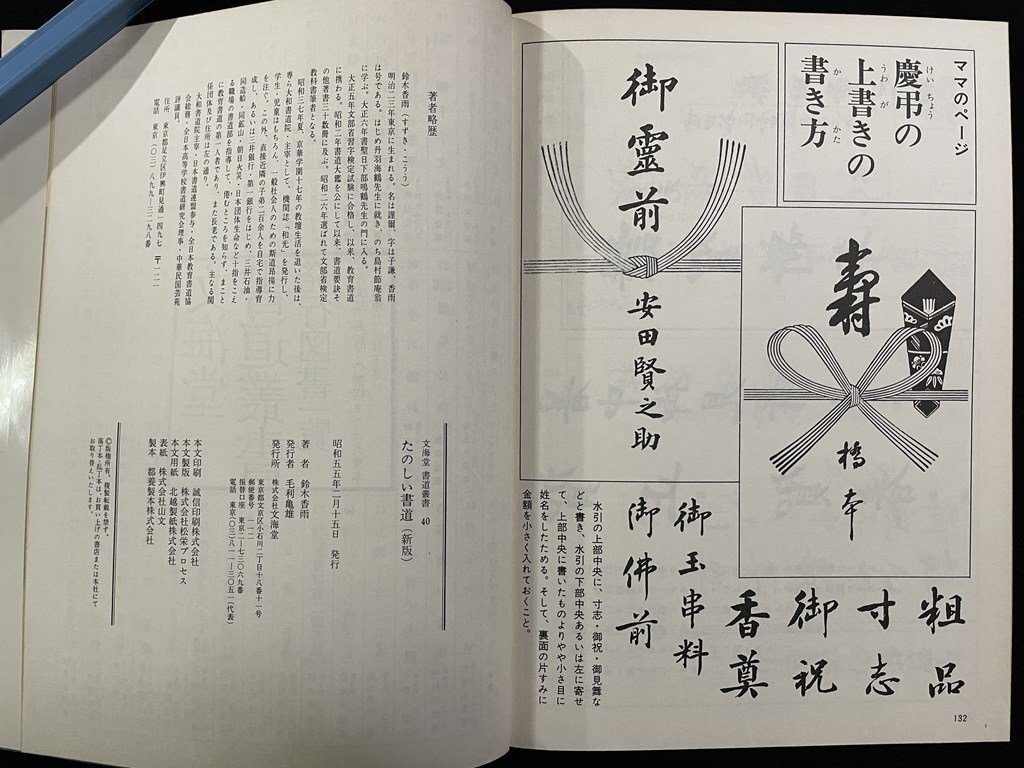 ママのページ
慶弔の
けいちょう
上書きの
うわが
書き方
かかた
寿
橋本
御霊前
安田賢之助
粗品
寸志
御祝
香奠
御玉串料
御佛前
水引の上部中央に、寸志・御祝・御見舞な
どと書き、水引の下部中央あるいは左に寄せ
て、上部中央に書いたものよりやや小さ目に
姓名をしたためる。そして、裏面の片すみに
金額を小さく入れておくこと。
132
著者略歴
鈴木香雨(すずき・こうう)
明治二三年東京に生まれる。名は謹爾、字は子謙、香雨
は号である。はじめ丹羽海鶴先生に就き、のち島村節庵翁
に学ぶ。大正六年書聖日下部鳴鶴先生の門に入る。
大正五年文部省習字検定試験に合格し、以来、教育書道
に携わる。昭和二年書道大鑑を公にして以来、書道要訣そ
の他著書三十数冊に及ぶ。昭和二六年選ばれて文部省検定
教科書筆者となる。
昭和三七年夏、京華学園十七年の教壇生活を退いた後は、
専ら大和書道院・主宰として、機関誌「和光」を発行し、
学生・児童はもちろん、一般社会人のための斯道昂揚に力
を注ぐ。この外、直接近隣の子弟二百余人を自宅で指導育
成し、あるいは三井銀行・第一銀行をはじめ、三井石油・
同造船・同鉱山・朝日火災・日本団体生命など十指をこえ
る職場の書道部を指導して、倦むところを知らず、まこと
に教育書道の第一人者であり、また長老である。主なる関
係団体及び住所は左の通り。
大和書道院主宰・日本書道連盟参与・全日本教育書道協
会総務・全日本高等学校書道研究会理事・中華民国芸苑
評議員。
住所 東京都足立区伊興町見通一四九七 〒一二一
電話 東京(〇三)八九九-三二九八番
文海堂 書道叢書 40
たのしい書道(新版)
昭和五五年二月十五日 発行
著者 鈴木香雨
発行者 毛利亀雄
発行所 株式会社文海堂
東京都文京区小石川二丁目十八番十一号
郵便番号 一一二
振替口座 東京二-七三〇六九番
電話 東京(〇三)八一一-三〇五一(代表)
本文印刷 誠信印刷株式会社
本文製版 株式会社松栄プロセス
本文用紙 北越製紙株式会社
表紙 株式会社山文
製本 都養製本株式会社
©版権所有。複製転載を禁ず。
落丁本・乱丁本は、お買い上げの書店または本社にて
お取り替えいたします。